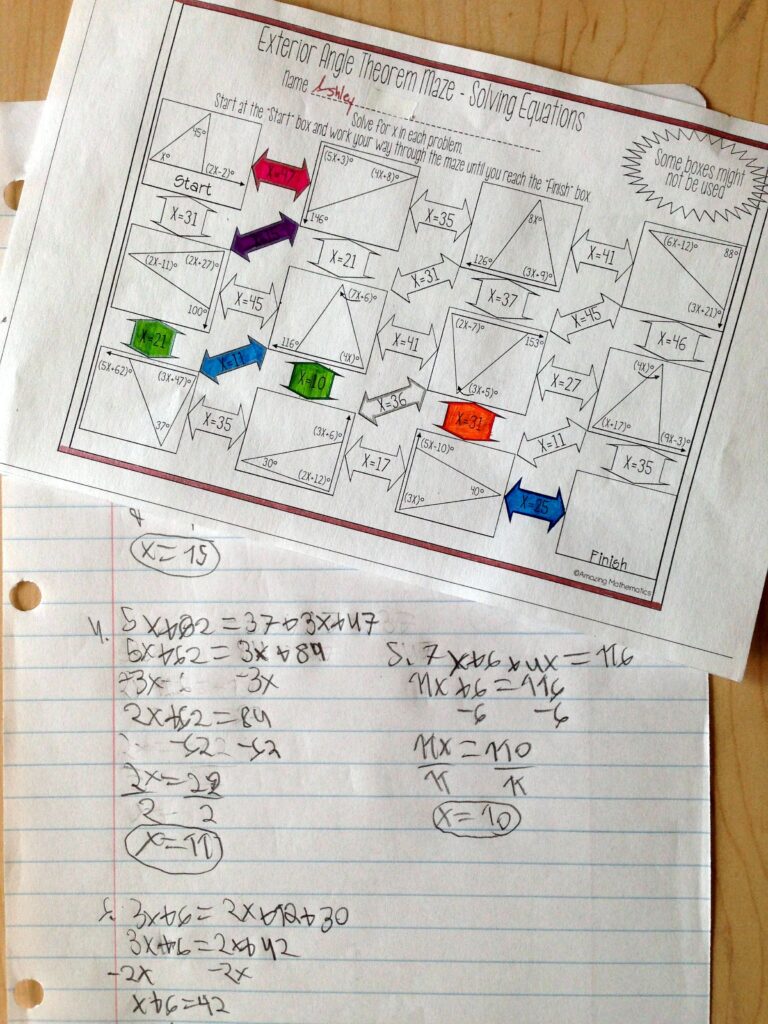 Exterior Angle Theorem Maze - Solving Equations
Name Ashley
Solve for x in each problem.
Start at the "Start" box and work your way through the maze until you reach the "Finish" box
Some boxes might
not be used
45°
x°
(2X-2)°
Start
X=47
(5X+3)°
(4X+8)°
146°
X=35
8X°
126°
(3X+9)°
X=41
(6X-12)°
88°
(3X+21)°
X=31
X=21
X=31
X=37
X=45
X=46
(2X-11)°
(2X+27)°
100°
X=45
(7X+6)°
116°
(4X)°
X=41
(2X-7)°
153°
(3X+5)°
X=27
(4X)°
(X+17)°
(9X-3)°
X=21
X=11
X=10
X=36
X=31
X=11
X=35
(5X+62)°
(3X+47)°
37°
X=35
(3X+6)°
30°
(2X+12)°
X=17
(5X-10)°
40°
(3X)°
X=25
Finish
©Amazing Mathematics
x=15
4. 5x+62=37+3x+47
5x+62=3x+84
-3x -3x
2x+62=84
-62 -62
2x=22
2 2
x=11
5. 7x+6+4x=116
11x+6=116
-6 -6
11x=110
11 11
x=10
3x+6=2x+12+30
3x+6=2x+42
-2x -2x
x+6=42